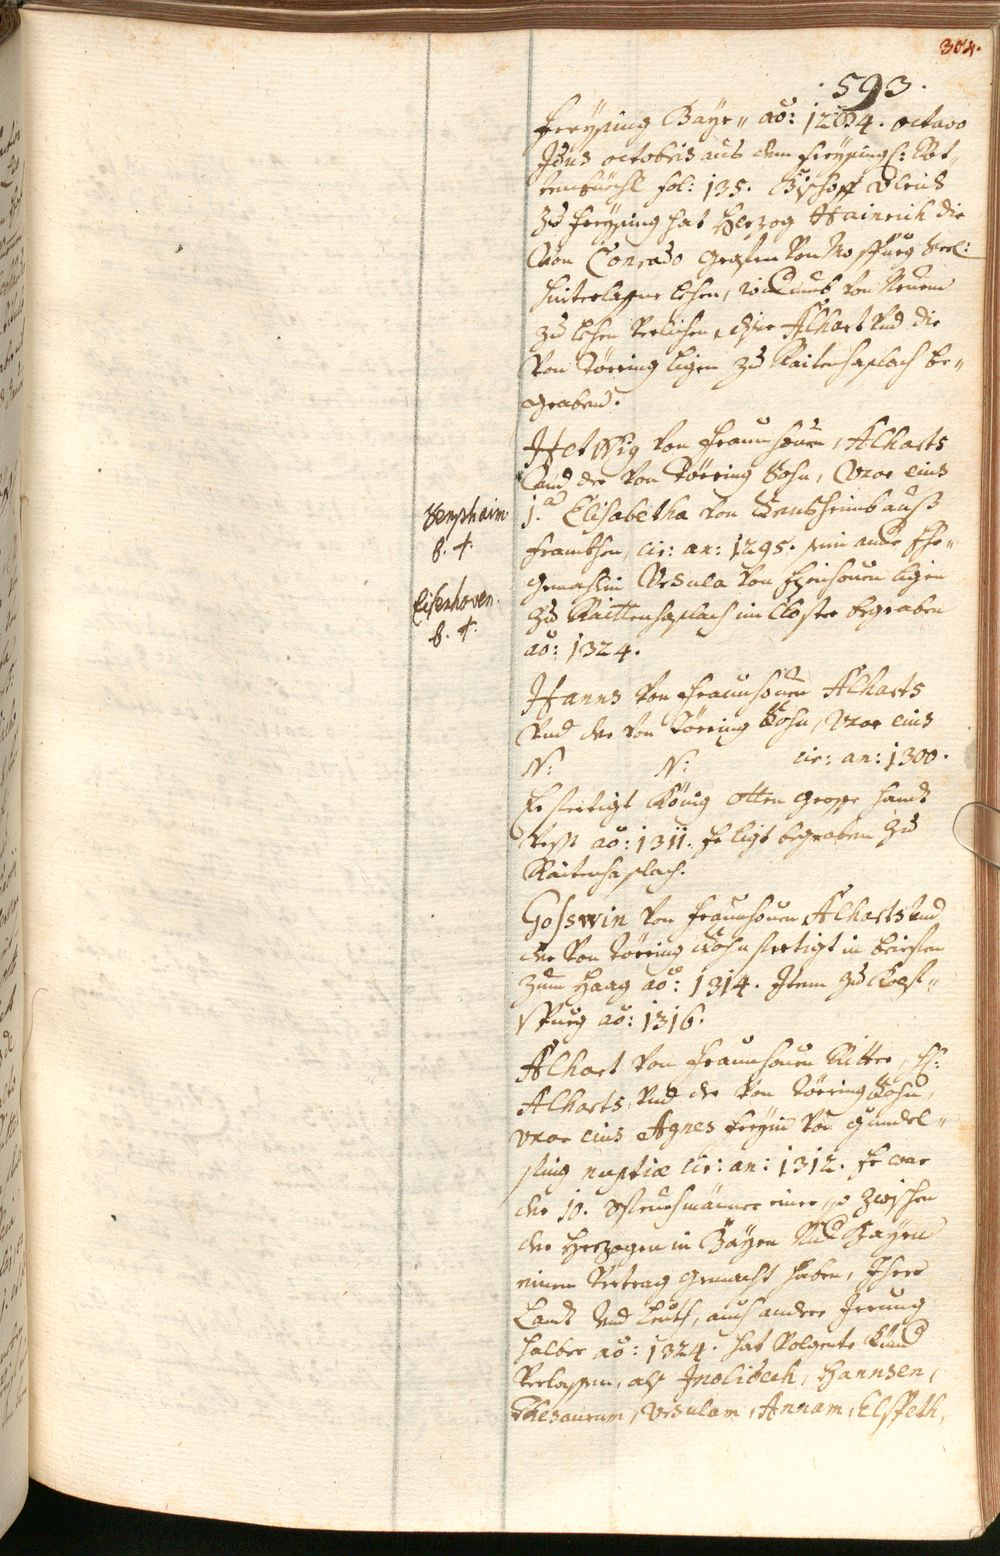 304.
·593·
Freysing Bayr" aō: 1284. octavo
Idus octobris aus dem freysing:
fol: 135. Bischoff Ulrich
zu Freysing hat Herzog Hainrich die
Von Conrado Grafen von Mospurg Seel:
hinterlassne Lehen, widerumb von Neuem
zu Lehen verlichen, diser Alhart und die
von Törring ligen zu Raitenhaslach be"
graben.
Hetwig von Fraunhouen, Alharts
und der von Törring Sohn, Uxor eius
1.a Elisabetha von Senfshaimb auß
Frankhen, cir: an: 1295. sein ande Ehe"
gemahlin Ursula von Eysenhouen ligen
zu Raittenhaslach im Closter begraben
aō: 1324.
Senshaim
b. 4.
Eisenhoven.
b. 4.
Hanns von Fraunhouen Alharts
und der von Törring Sohn, Uxor eius
N: N: cir: an: 1300.
Er fertigt König Otten grosse handt
vest aō: 1311. Er ligt begraben zu
Raitenhaslach.
Gosswin von Fraunhouen Alharts und
der von Törring Sohn fertigt in briefen
zum Haag aō: 1314. Item zu
aō: 1316.
Alhart von Fraunhouen Ritter, H:
Alharts, und der von Törring Sohn,
uxor eius Agnes Freyin von Gundel"
fing nuptiæ cir: an: 1312. Er war
der 10. einer, so zwischen
der Herzogen in Bayrn Und Bayrn
einen Vertrag gemacht haben, Ihrer
Landt und Leuth, auch anderer Irrung
halber aō: 1324. hat volgente Kind
verlassen, als Hannsen,
Thesaurum, Ursulam, Annam, Elspeth,